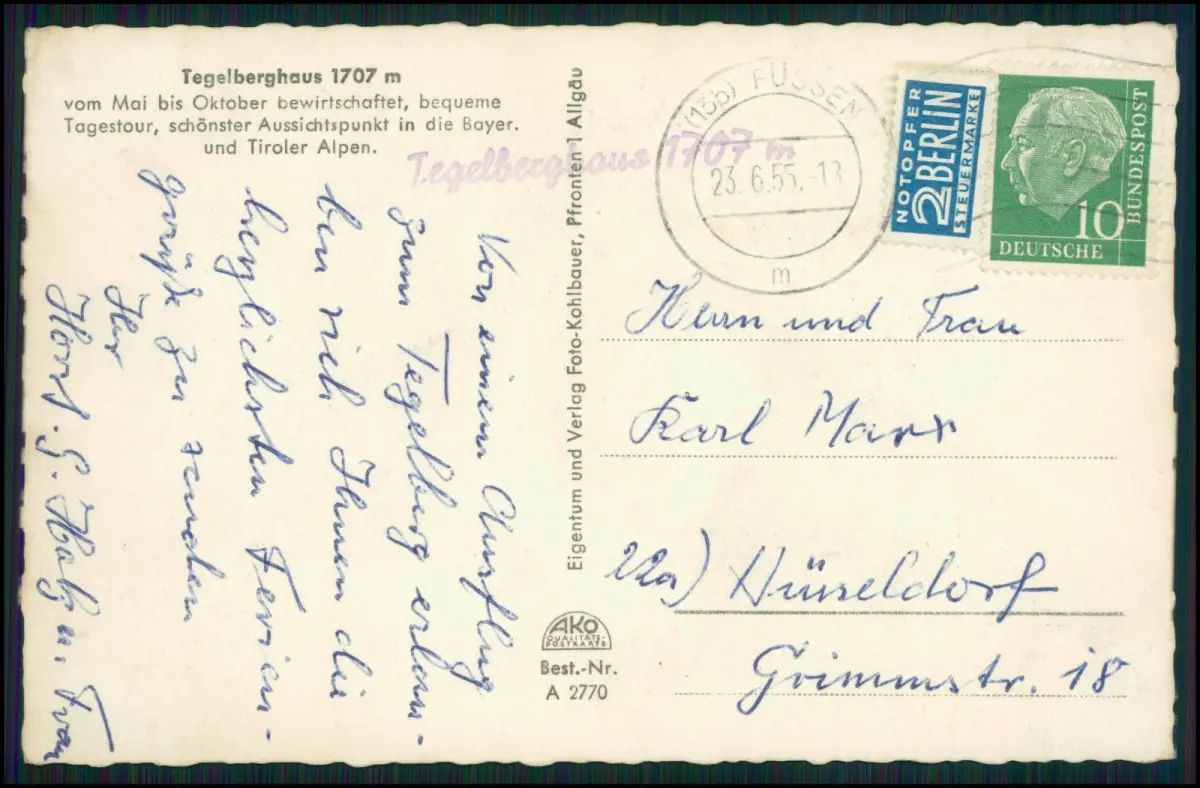 Tegelberghaus 1707 m
vom Mai bis Oktober bewirtschaftet, bequeme
Tagestour, schönster Aussichtspunkt in die Bayer.
und Tiroler Alpen.
Tegelberghaus 1707 m
Von einem Ausflug
zum Tegelberg erlau-
ben wir Ihnen die
herzlichsten Ferien-
grüße zu senden
Ihr
Horst. G. u. Frau
Eigentum und Verlag Foto-Kohlbauer, Pfronten i Allgäu
AKO
QUALITÄTS-
POSTKARTE
Best.-Nr.
A 2770
(13b) FÜSSEN
23. 6.55.-18
m
NOTOPFER
2 BERLIN
STEUERMARKE
10
DEUTSCHE
BUNDESPOST
Herrn und Frau
Karl Marx
22a) Düsseldorf
Grimmstr. 18